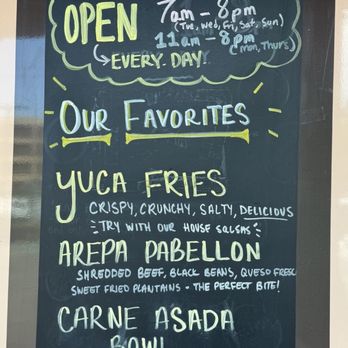 OPEN 7am - 8pm
(Tue, Wed, Fri, Sat, Sun)
11am - 8pm
(Mon, Thurs)
EVERY DAY
OUR FAVORITES
YUCA FRIES
CRISPY, CRUNCHY, SALTY, DELICIOUS
TRY WITH OUR HOUSE SALSAS
AREPA PABELLON
SHREDDED BEEF, BLACK BEANS, QUESO FRESC
SWEET FRIED PLANTAINS - THE PERFECT BITE!
CARNE ASADA
BOWL